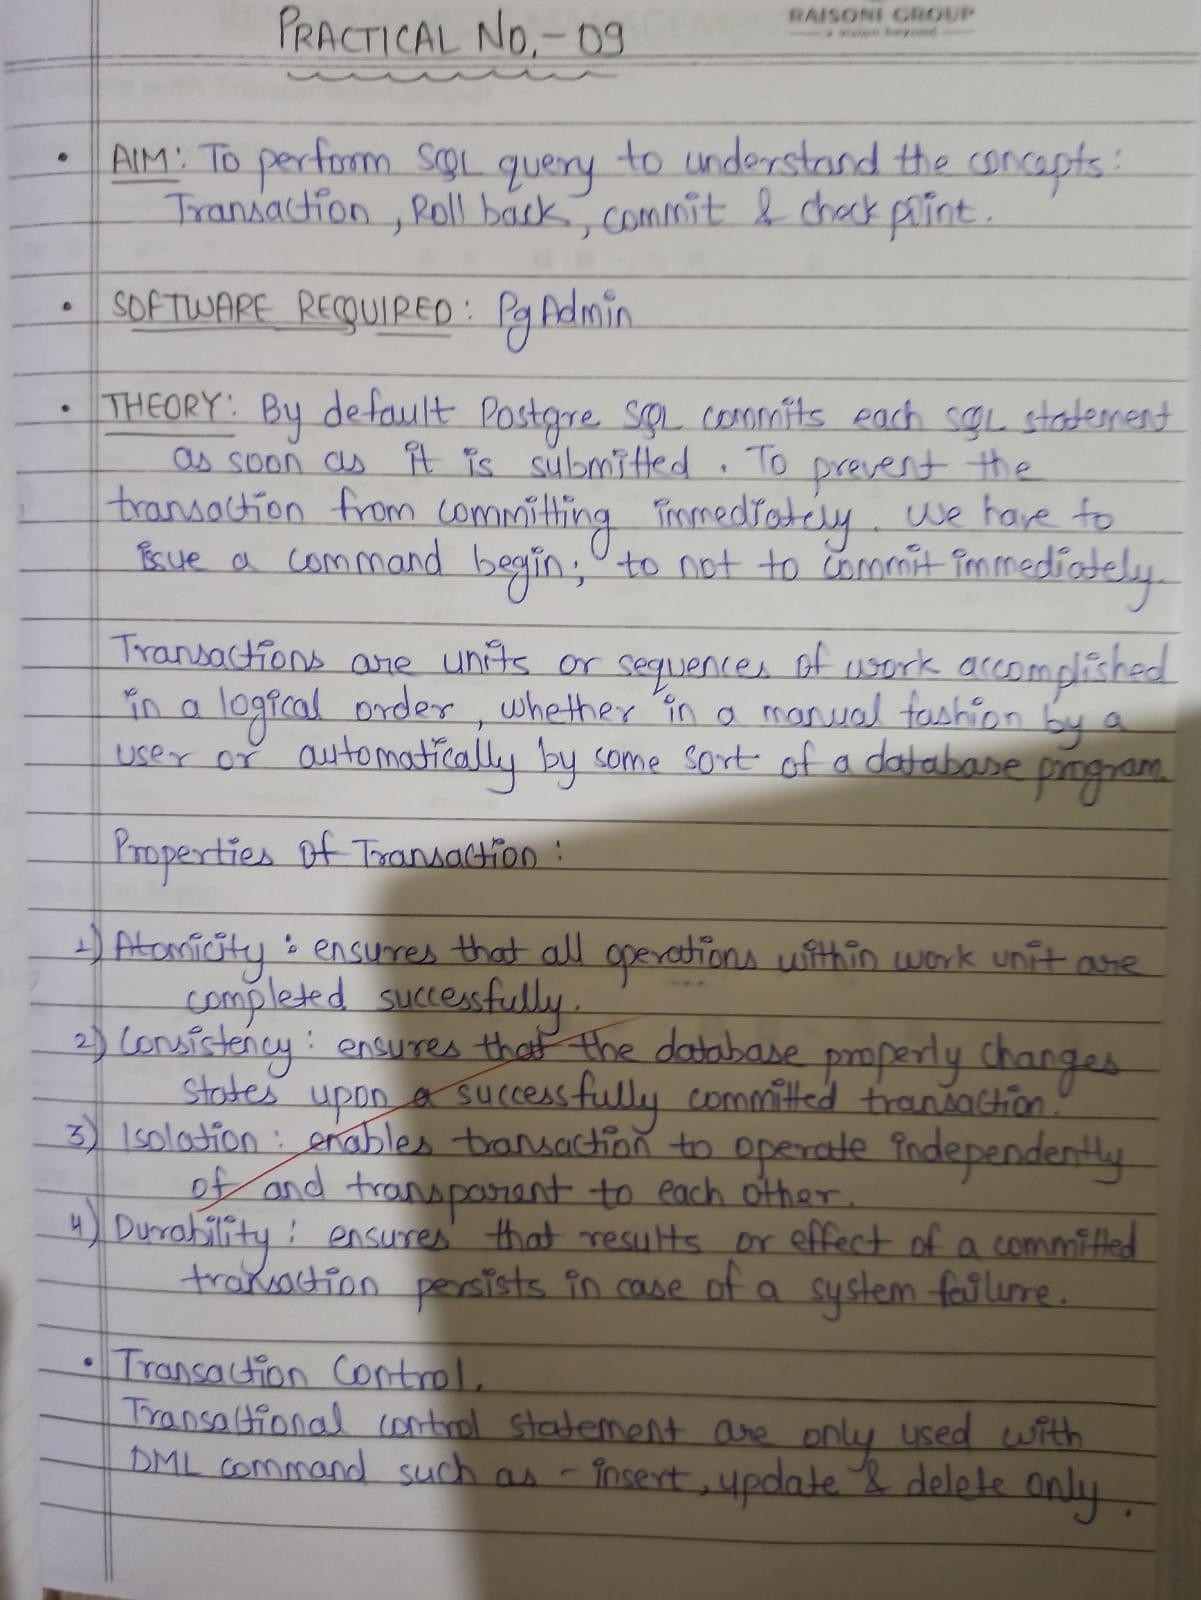 PRACTICAL NO.-09
RAISONI GROUP
a vision beyond
• AIM: To perform SQL query to understand the concepts:
Transaction, Roll back, commit & check point.
• SOFTWARE REQUIRED: PgAdmin
• THEORY: By default Postgre SQL commits each SQL statement
as soon as it is submitted. To prevent the
transaction from committing immediately. we have to
issue a command begin; to not to commit immediately.
Transactions are units or sequences of work accomplished
in a logical order, whether in a manual fashion by a
user or automatically by some sort of a database program.
Properties of Transaction:
1) Atomicity: ensures that all operations within work unit are
completed successfully.
2) Consistency: ensures that the database properly changes
states upon a successfully committed transaction.
3) Isolation: enables transaction to operate independently
of and transparent to each other.
4) Durability: ensures that results or effect of a committed
transaction persists in case of a system failure.
• Transaction Control.
Transactional control statement are only used with
DML command such as - insert, update & delete only.